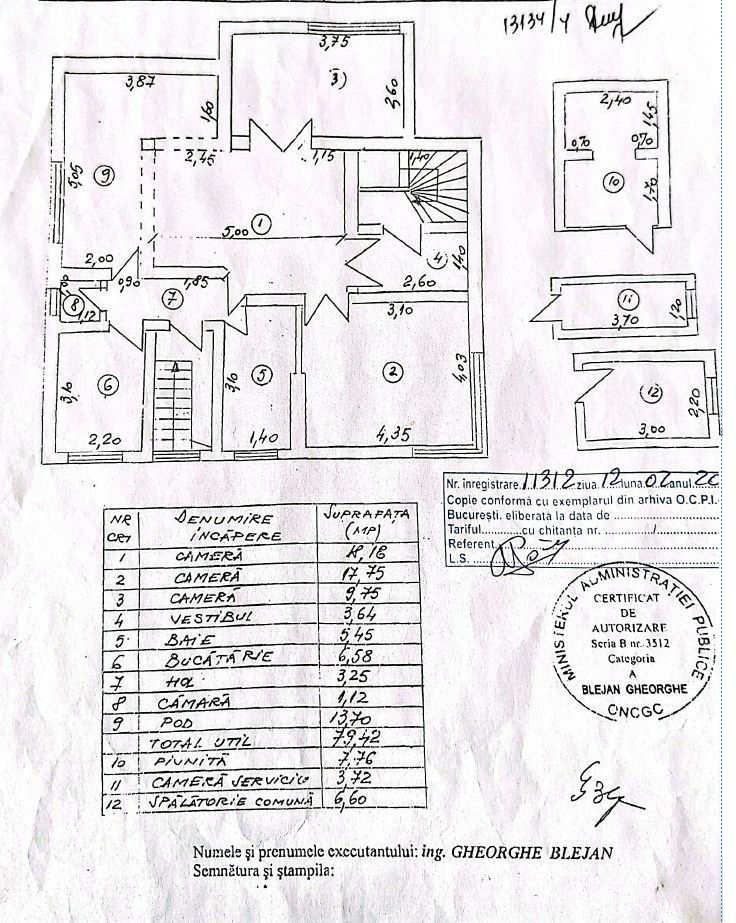 13134/4
3,75
3)
3,60
3,87
1,60
2,45
1,15
1,40
9
5,05
1
5,00
2,00
0,90
1,85
4
1,40
2,60
7
8
1,12
3,10
6
3,10
2,20
5
3,10
1,40
2
4,03
4,35
2,40
1,45
0,70
0,70
10
1,70
11
3,70
1,20
12
2,20
3,00
Nr. înregistrare 11312 ziua 12 luna 02 anul 20
Copie conformă cu exemplarul din arhiva O.C.P.I.
București, eliberată la data de
Tariful cu chitanța nr. /
Referent
L.S.
NR CRT DENUMIRE ÎNCĂPERE SUPRAFAȚA (MP)
1 CAMERĂ 18,18
2 CAMERĂ 17,75
3 CAMERĂ 9,75
4 VESTIBUL 3,64
5 BAIE 5,45
6 BUCĂTĂRIE 6,58
7 HOL 3,25
8 CĂMARĂ 1,12
9 POD 13,70
TOTAL UTIL 79,42
10 PIVNIȚĂ 7,76
11 CAMERĂ SERVICIU 3,72
12 SPĂLĂTORIE COMUNĂ 6,60
MINISTERUL ADMINISTRAȚIEI PUBLICE
CERTIFICAT
DE
AUTORIZARE
Seria B nr. 3512
Categoria
A
BLEJAN GHEORGHE
ONCGC
Numele și prenumele executantului: ing. GHEORGHE BLEJAN
Semnătura și ștampila: